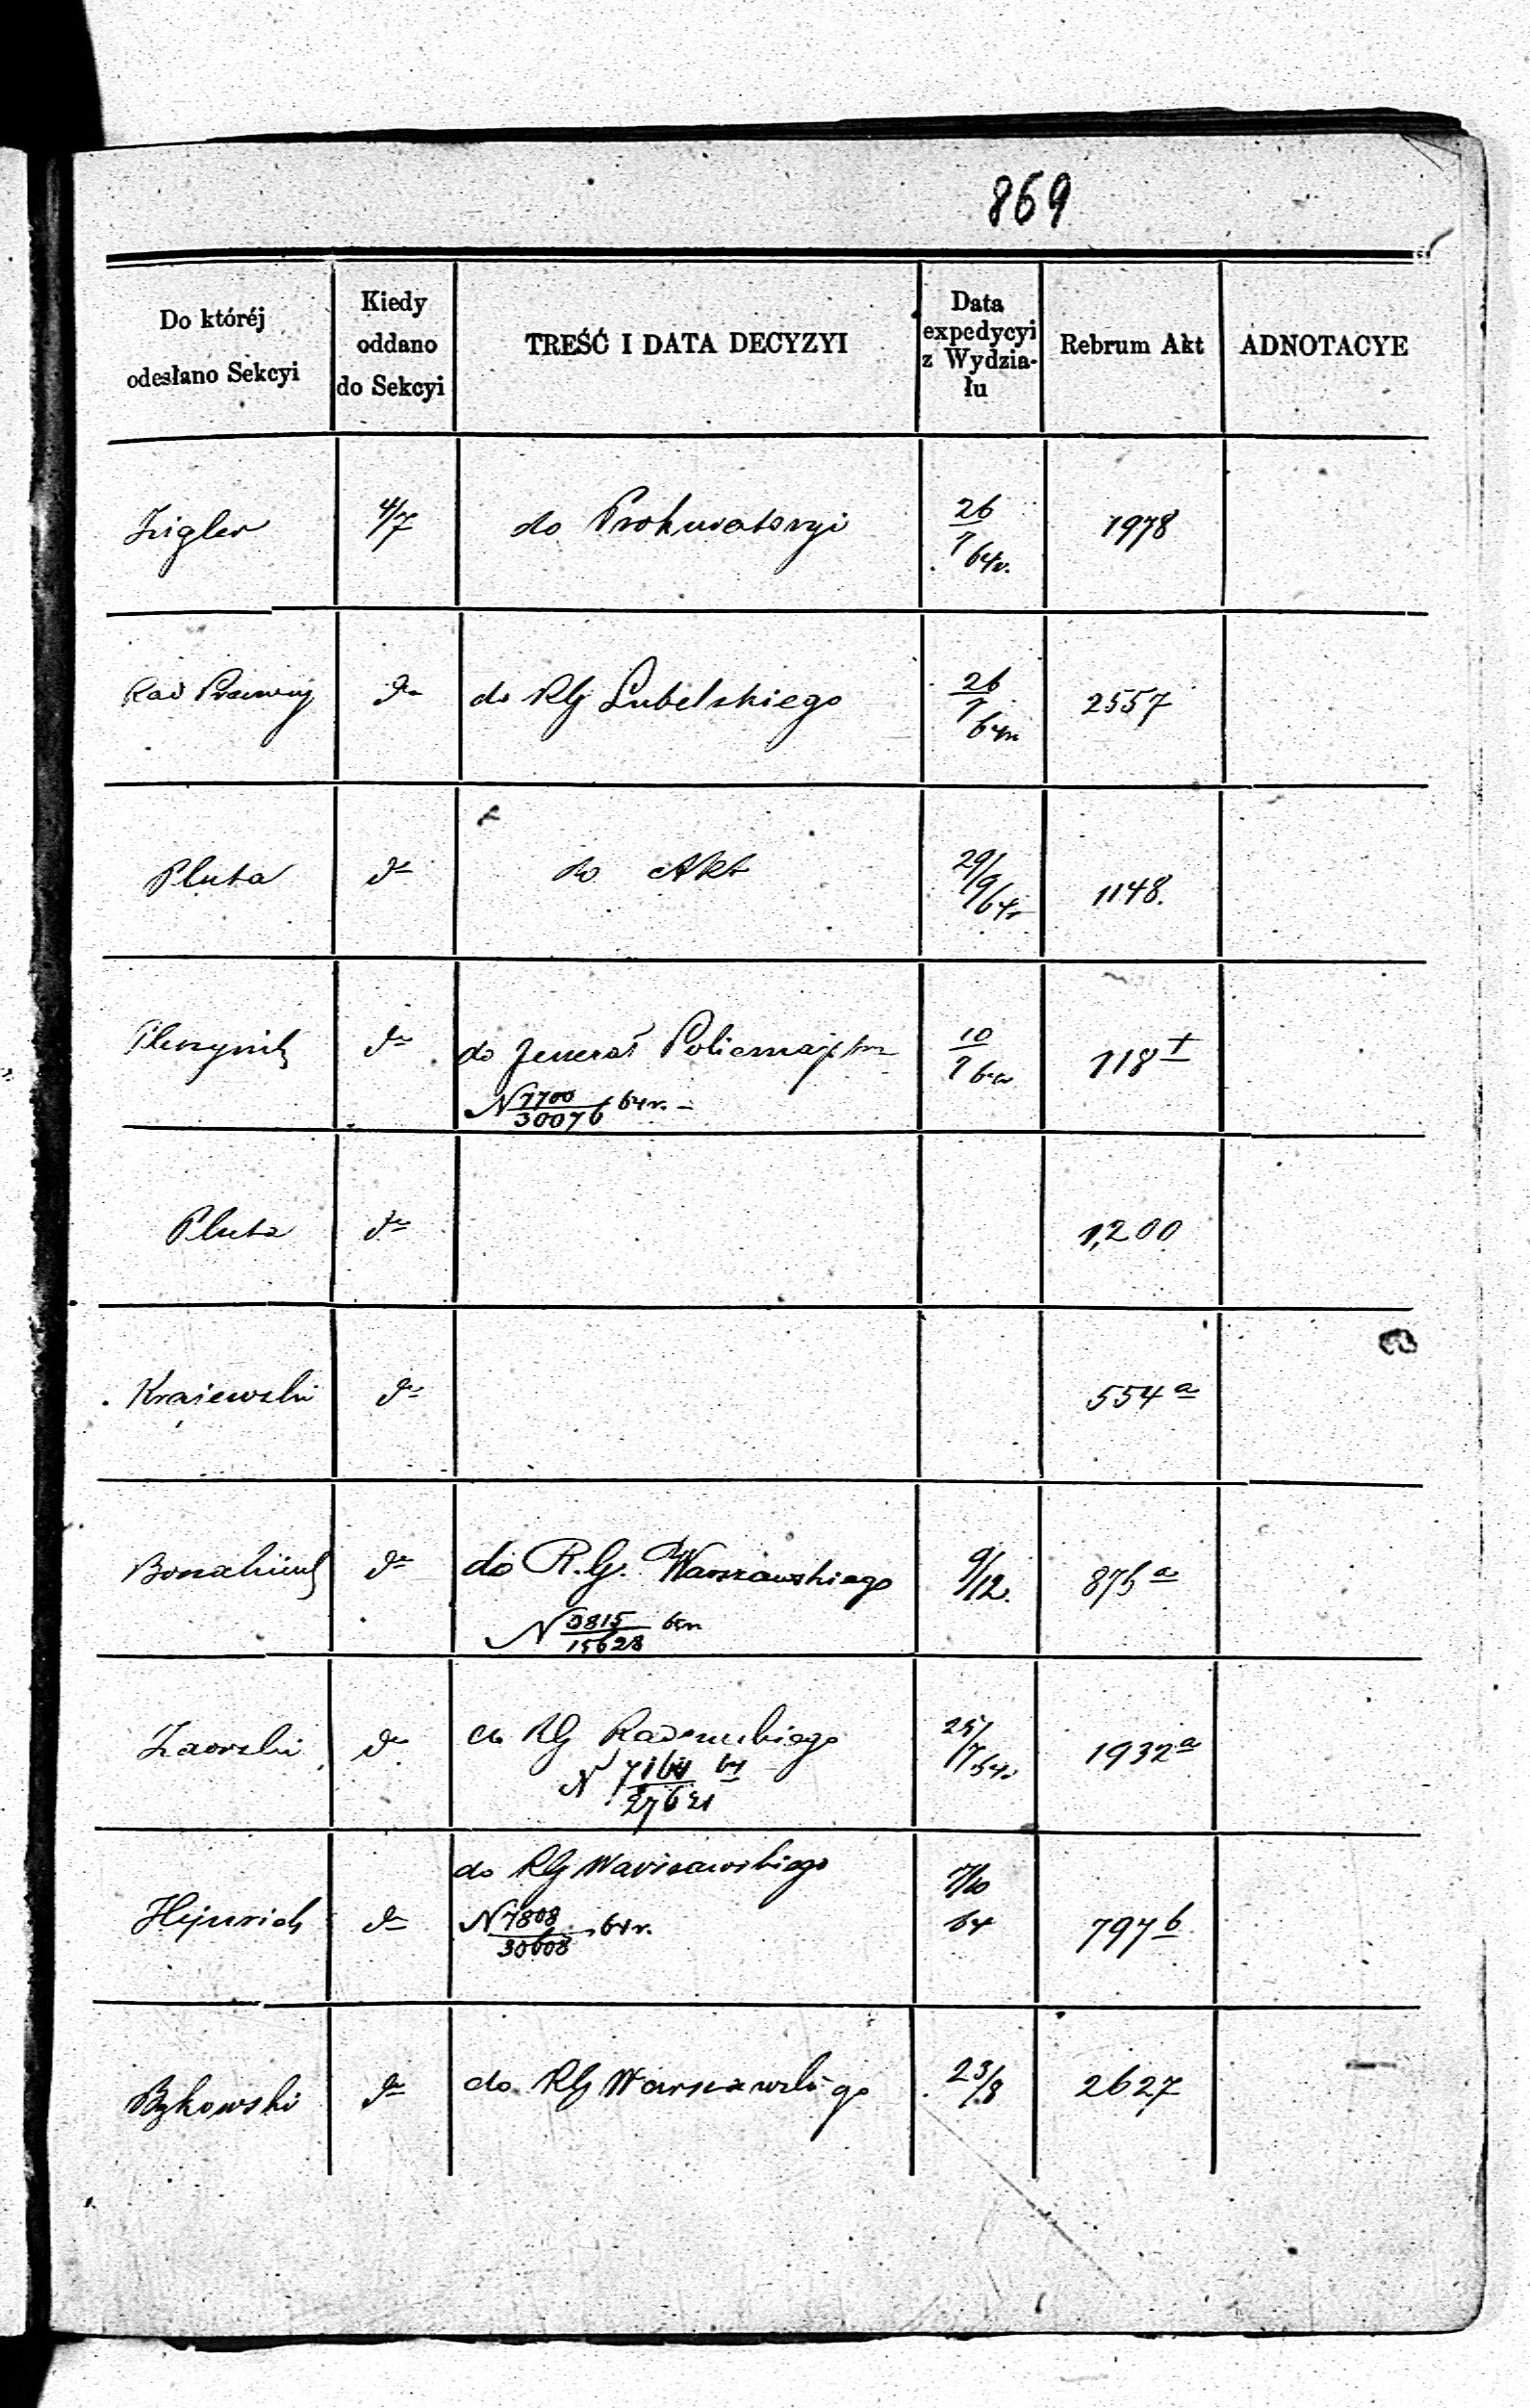 869
Do któréj
odesłano Sekcyi
Kiedy
oddano
do Sekcyi
TREŚĆ I DATA DECYZYI
Data
expedycyi
z Wydzia-
łu
Rebrum Akt
ADNOTACYE
Zigler 4/7 do Prokuratoryi 26/7 64r. 1978
Rad Prawny do do RG Lubelskiego 26/7 64r 2557
Pluta do do Akt 29/9/64r 1148.
do do Jenerał Policmajstra 10/9 64r 118 I
N 7700/30076 64r. -
Pluta do 1,200
Krajewski do 554 a
do do R.G. Warszawskiego 9/12. 875 a
N 3815/15628 65r
Zaorski do do RG Radomskiego 25/7 64r 1932 a
N 7164/27621 64
Hejnrich do do RG Warszawskiego 7/10 64 797 b
N 7808/30608 64r.
Bykowski do do RG Warszawskigo 23/8 2627